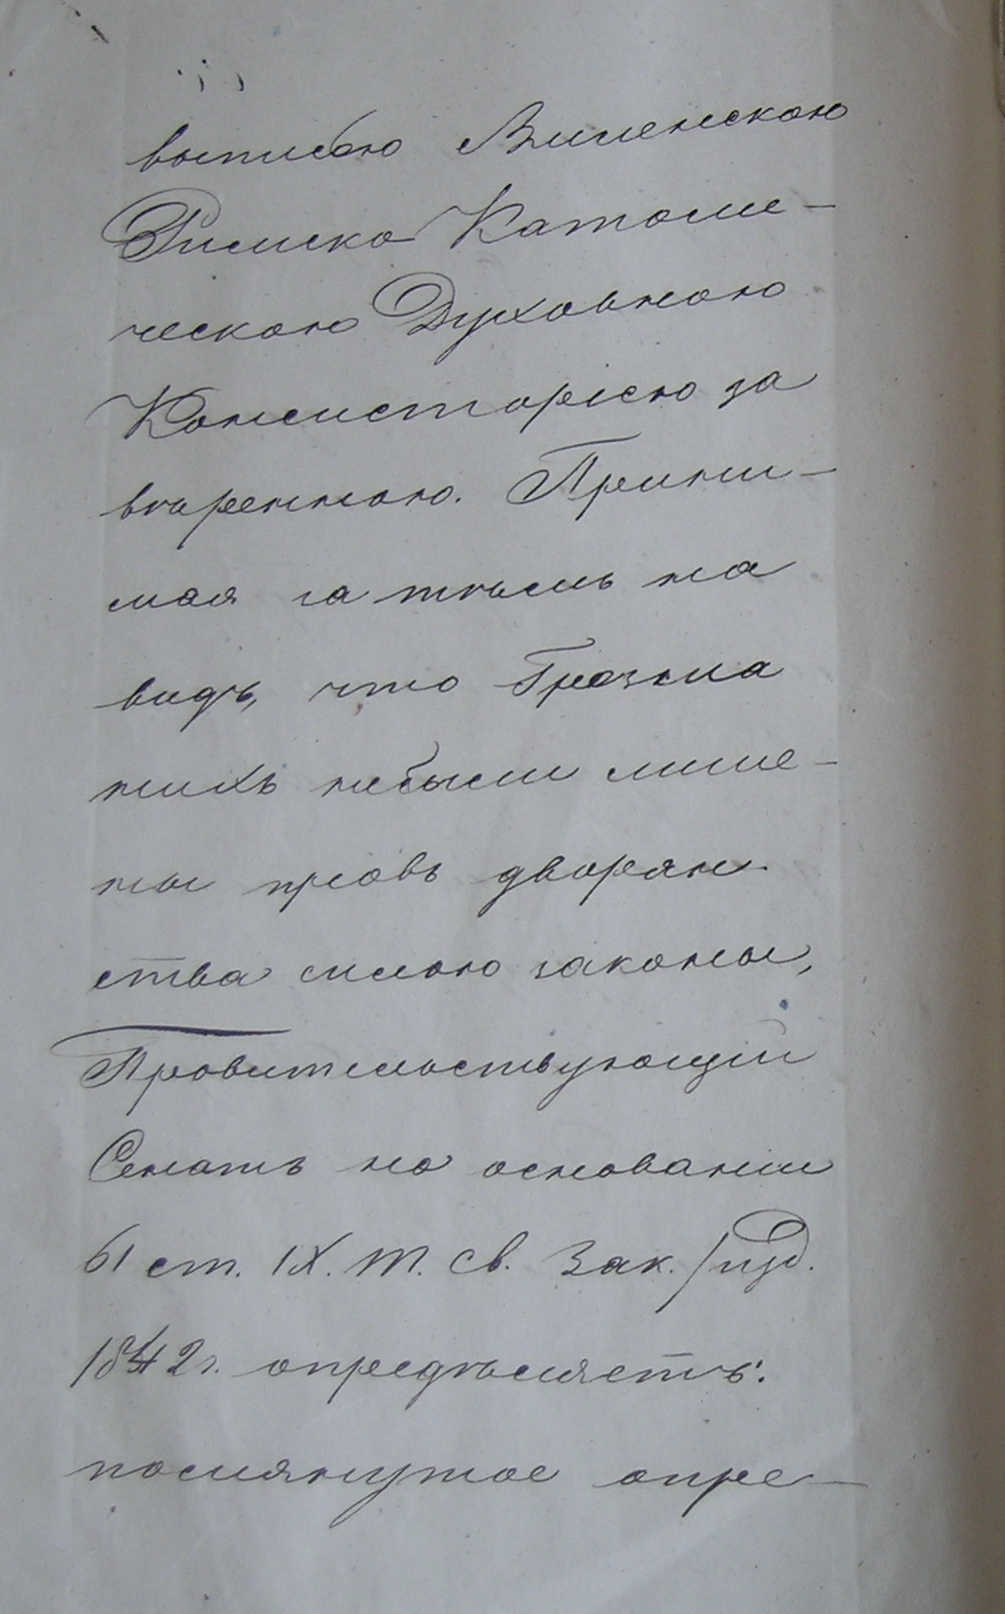 выписью Виленскою
Римско Католи-
ческою Духовною
Консисторіею за
вѣренною. Прини-
мая за тѣмъ на
видъ, что Грозма
нихъ небыли лише-
ны правъ дворян-
ства силою законы,
Правительствующій
Сенатъ на основаніи
61 ст. IX. т. св. Зак. /изд.
1842 г. опредѣляетъ:
помянутое опре-